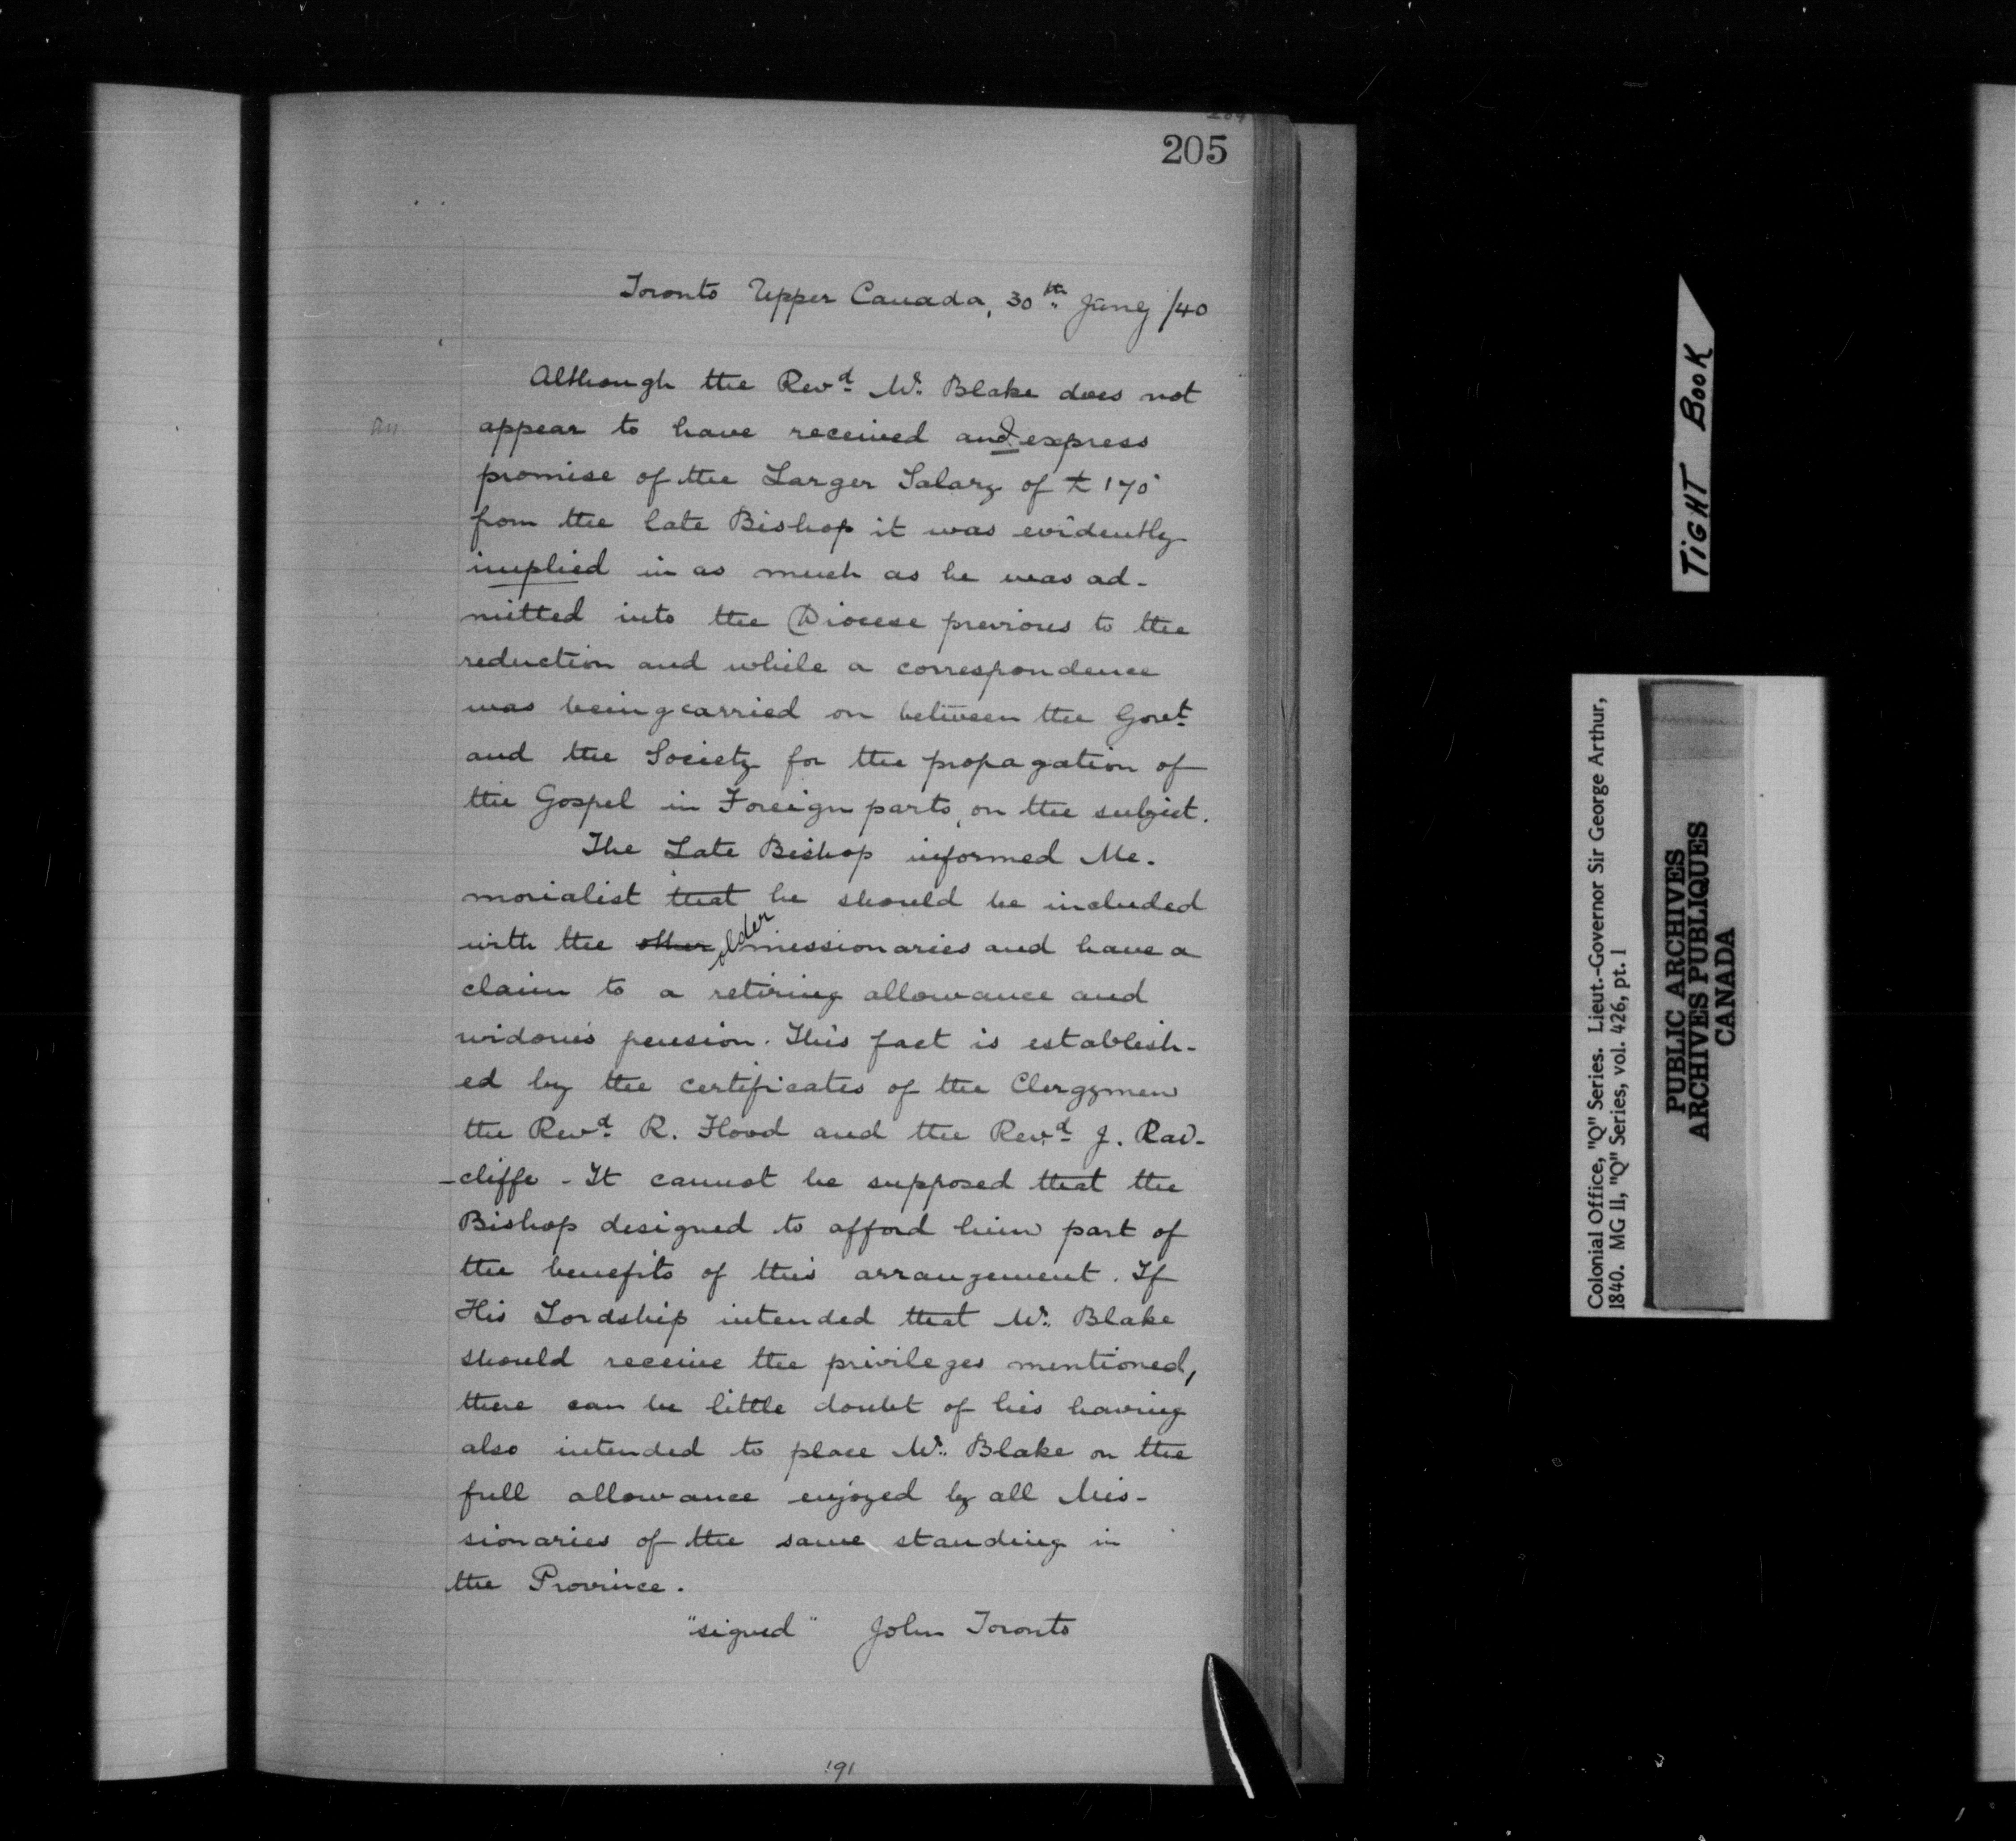 205
Toronto Upper Canada, 30th Jany /40
Although the Revd Mr. Blake does not
an
appear to have received and express
promise of the Larger Salary of £170
from the late Bishop it was evidently
implied in as much as he was ad-
mitted into the Diocese previous to the
reduction and while a correspondence
was being carried on between the Govt
and the Society for the propagation of
the Gospel in Foreign parts, on the subject.
The Late Bishop informed Me-
morialist that he should be included
with the other older missionaries and have a
claim to a retiring allowance and
widow's pension. This fact is establish-
ed by the certificates of the Clergymen
the Revd R. Flood and the Revd J. Rad-
-cliffe - It cannot be supposed that the
Bishop designed to afford him part of
the benefits of this arrangement. If
His Lordship intended that Mr. Blake
should receive the privileges mentioned,
there can be little doubt of his having
also intended to place Mr. Blake on the
full allowance enjoyed by all Mis-
sionaries of the same standing in
the Province.
"signed" John Toronto
191
TIGHT BOOK
Colonial Office, "Q" Series. Lieut.-Governor Sir George Arthur,
1840. MG 11, "Q" Series, vol. 426, pt. 1
PUBLIC ARCHIVES
ARCHIVES PUBLIQUES
CANADA